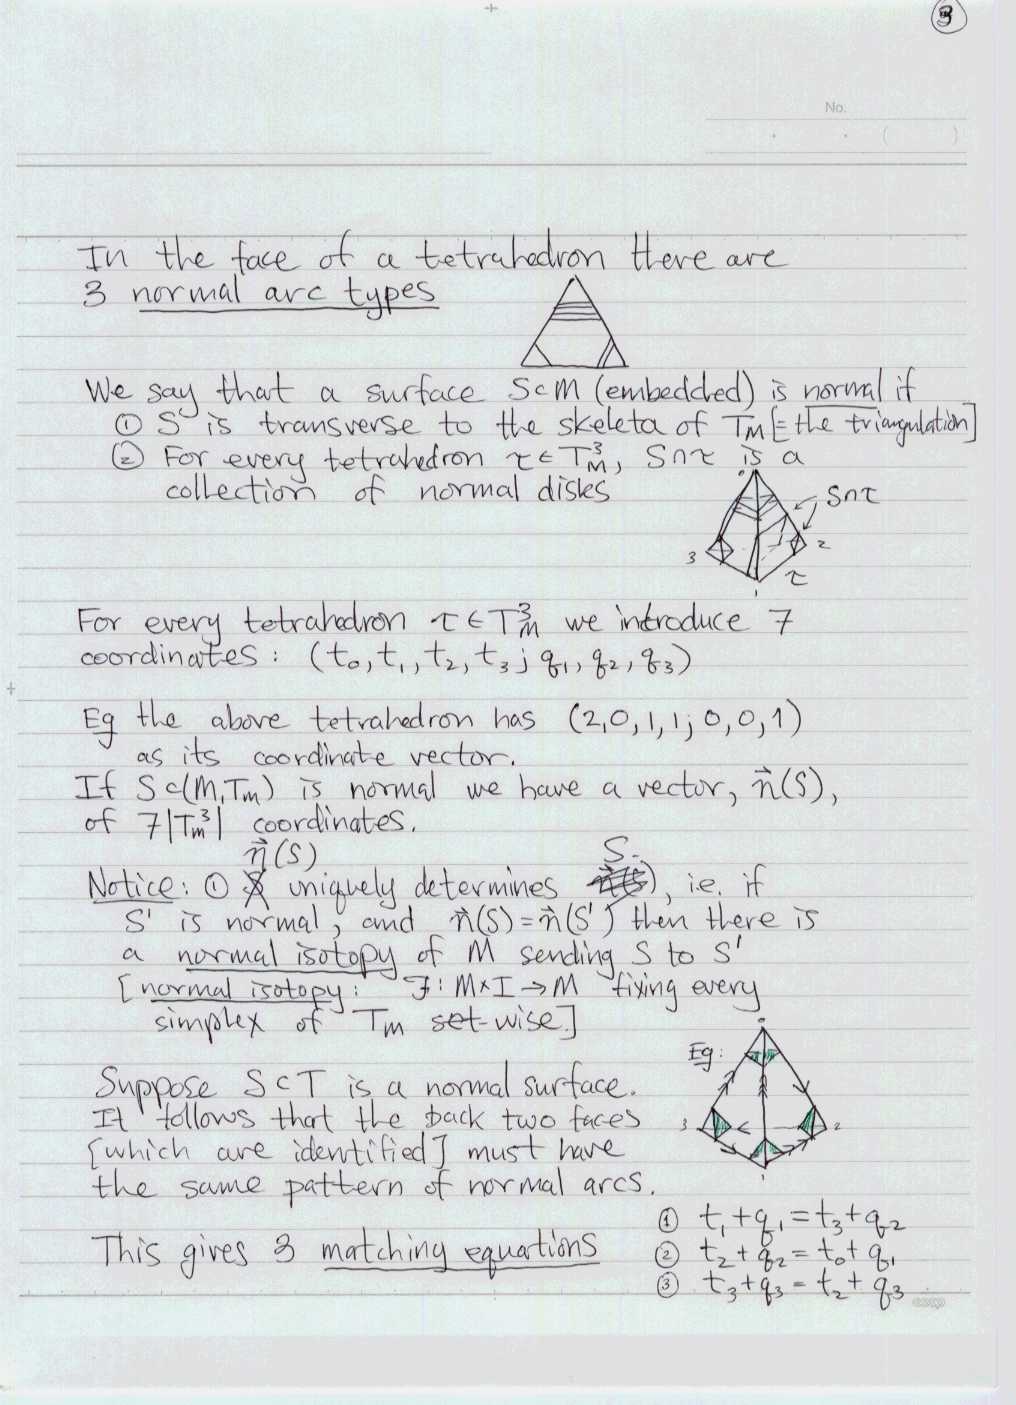 3
No.
In the face of a tetrahedron there are
3 normal arc types
We say that a surface S⊂M (embedded) is normal if
① S is transverse to the skeleta of T_M [= the triangulation]
② For every tetrahedron τ ∈ T_M^3, S∩τ is a
collection of normal disks
0
S∩τ
3
2
τ
1
For every tetrahedron τ ∈ T_M^3 we introduce 7
coordinates : (t_0, t_1, t_2, t_3 ; q_1, q_2, q_3)
Eg the above tetrahedron has (2,0,1,1; 0,0,1)
as its coordinate vector.
If S ⊂ (M, T_M) is normal we have a vector, n⃗(S),
of 7|T_M^3| coordinates.
n⃗(S)
S.
Notice: ① uniquely determines , i.e. if
S' is normal, and n⃗(S) = n⃗(S') then there is
a normal isotopy of M sending S to S'
[normal isotopy : F : M×I → M fixing every
simplex of T_M set-wise.]
Eg:
0
3
2
1
Suppose S⊂T is a normal surface.
It follows that the back two faces
[which are identified] must have
the same pattern of normal arcs.
This gives 3 matching equations
① t_1 + q_1 = t_3 + q_2
② t_2 + q_2 = t_0 + q_1
③ t_3 + q_3 = t_2 + q_3